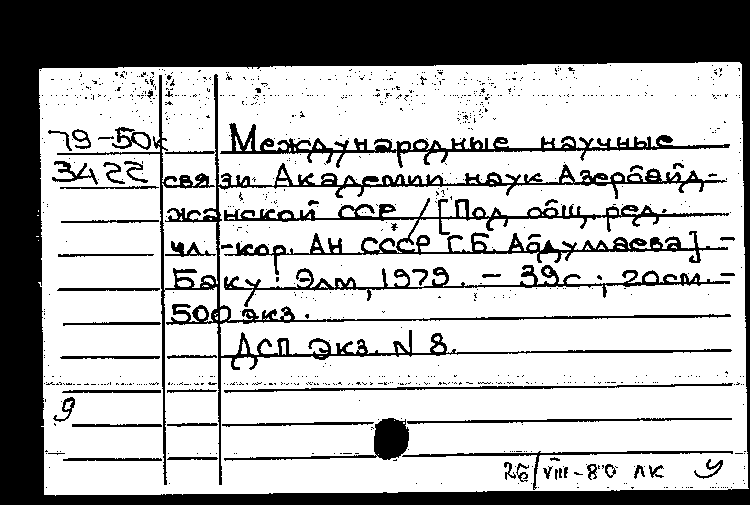 79-50к Международные научные
3422 связи Академии наук Азербайд-
жанской ССР / [Под общ. ред.
чл.-кор. АН СССР Г.Б. Абдуллаева]. -
Баку: Элм, 1979. - 39с; 20см. -
500 экз.
ДСП экз. N 8.
9
26/VIII-80 ЛК У